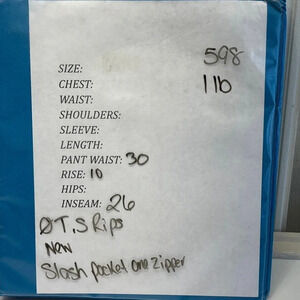 598
SIZE:
CHEST: 1 lb
WAIST:
SHOULDERS:
SLEEVE:
LENGTH:
PANT WAIST: 30
RISE: 10
HIPS:
INSEAM: 26
ØT, S Rips
New
Slash pocket one zipper